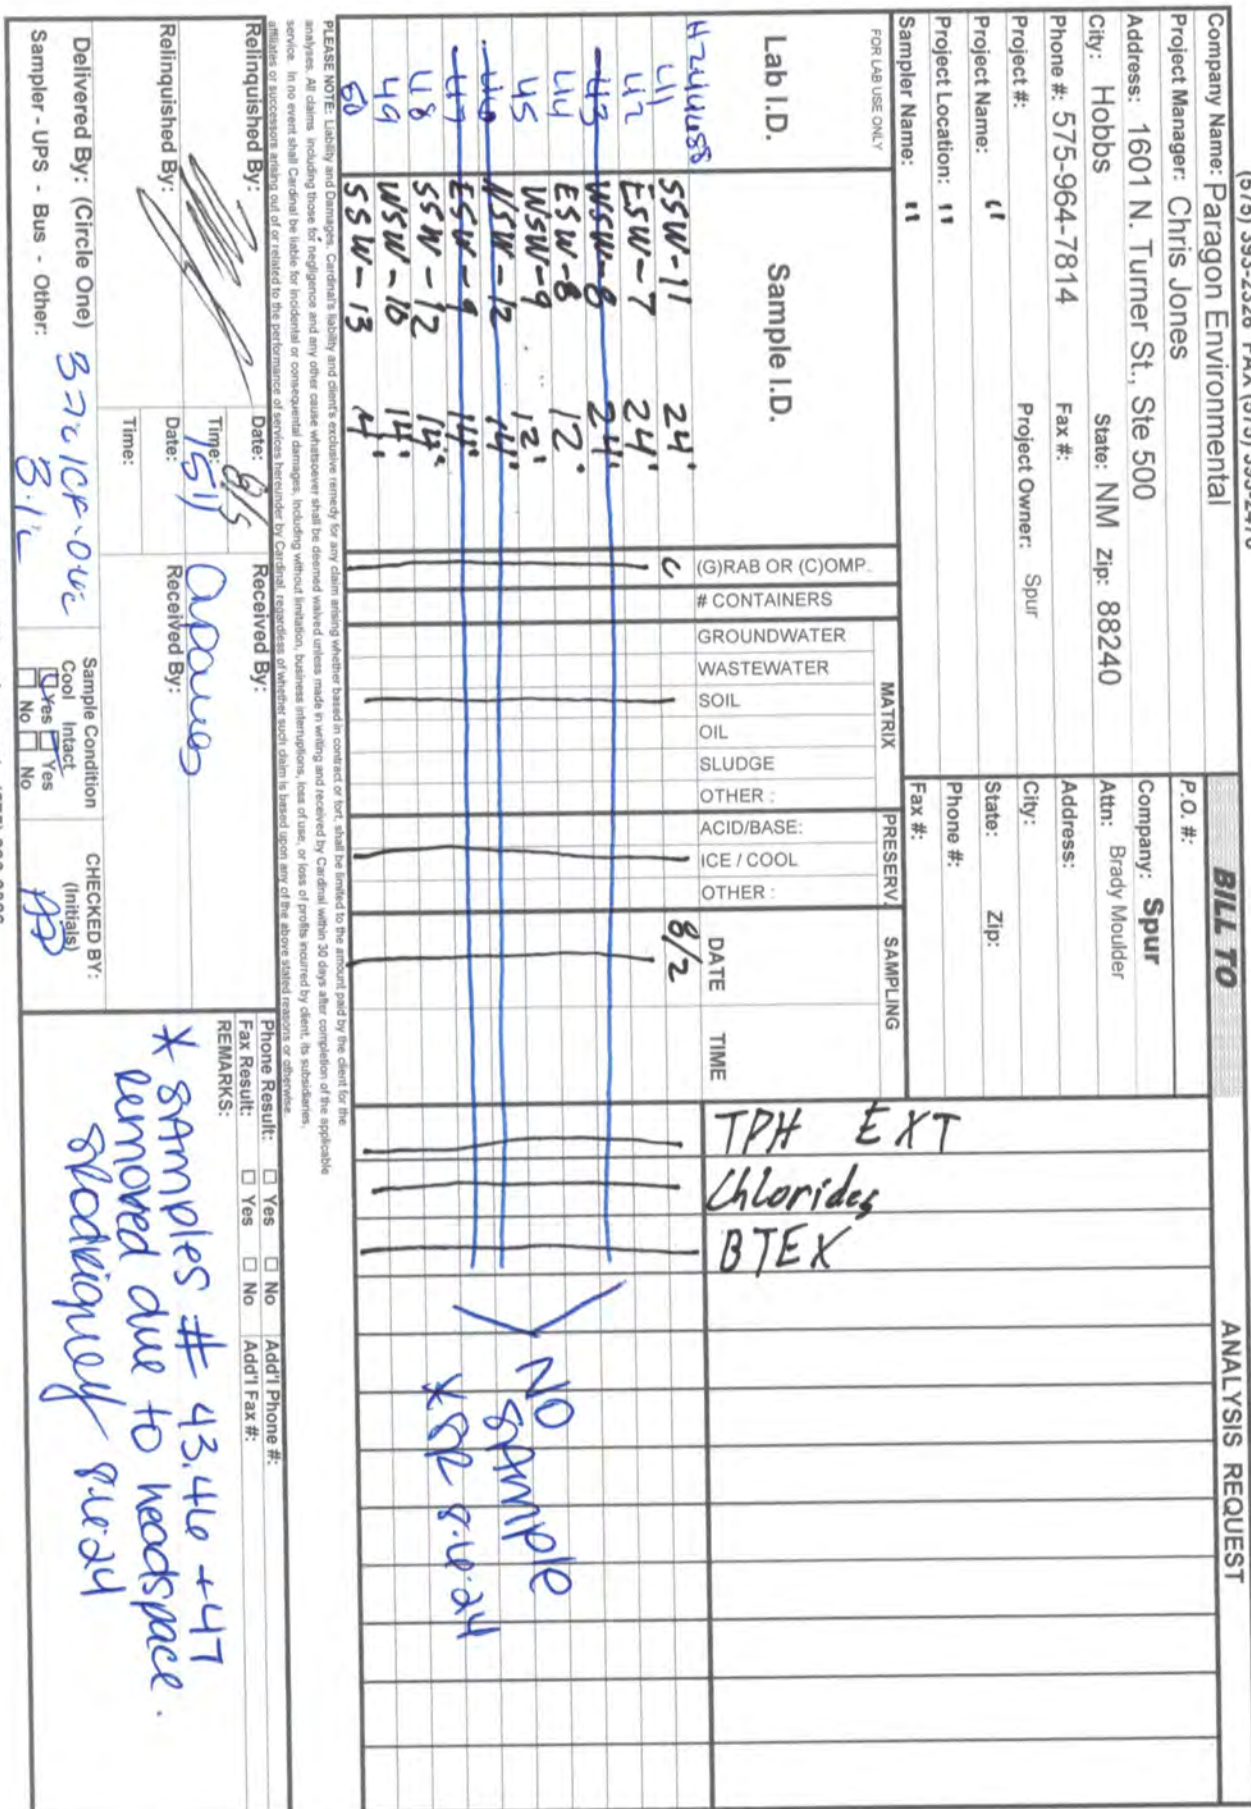 (575) 393-2326 FAX (575) 393-2476
Company Name: Paragon Environmental
Project Manager: Chris Jones
Address: 1601 N. Turner St., Ste 500
City: Hobbs State: NM Zip: 88240
Phone #: 575-964-7814 Fax #:
Project #: Project Owner: Spur
Project Name: "
Project Location: "
Sampler Name: "
BILL TO
P.O. #:
Company: Spur
Attn: Brady Moulder
Address:
City:
State: Zip:
Phone #:
Fax #:
ANALYSIS REQUEST
TPH EXT
Chlorides
BTEX
FOR LAB USE ONLY
Lab I.D.
Sample I.D.
(G)RAB OR (C)OMP.
# CONTAINERS
MATRIX
GROUNDWATER
WASTEWATER
SOIL
OIL
SLUDGE
OTHER :
PRESERV.
ACID/BASE:
ICE / COOL
OTHER :
SAMPLING
DATE
TIME
41 SSW-11 24' C 8/2
42 ESW-7 24'
43 WSW-8 24'
44 ESW-8 12'
45 WSW-9 12'
46 NSW-12 14'
47 ESW-9 14'
48 SSW-12 14'
49 WSW-10 14'
50 SSW-13 4'
NO
SAMPLE
*SR 8-6-24
PLEASE NOTE: Liability and Damages. Cardinal's liability and client's exclusive remedy for any claim arising whether based in contract or tort, shall be limited to the amount paid by the client for the
analyses. All claims including those for negligence and any other cause whatsoever shall be deemed waived unless made in writing and received by Cardinal within 30 days after completion of the applicable
service. In no event shall Cardinal be liable for incidental or consequental damages, including without limitation, business interruptions, loss of use, or loss of profits incurred by client, its subsidiaries,
affiliates or successors arising out of or related to the performance of services hereunder by Cardinal, regardless of whether such claim is based upon any of the above stated reasons or otherwise.
Relinquished By:
Date: 8/5
Time: 1511
Received By:
Relinquished By:
Date:
Time:
Received By:
Phone Result: □ Yes □ No Add'l Phone #:
Fax Result: □ Yes □ No Add'l Fax #:
REMARKS:
* SAMPLES # 43,46 +47
removed due to headspace.
SRodriguez 8-6-24
Delivered By: (Circle One)
Sampler - UPS - Bus - Other:
3.1°C
Sample Condition
Cool Intact
Yes Yes
No No
CHECKED BY:
(Initials)